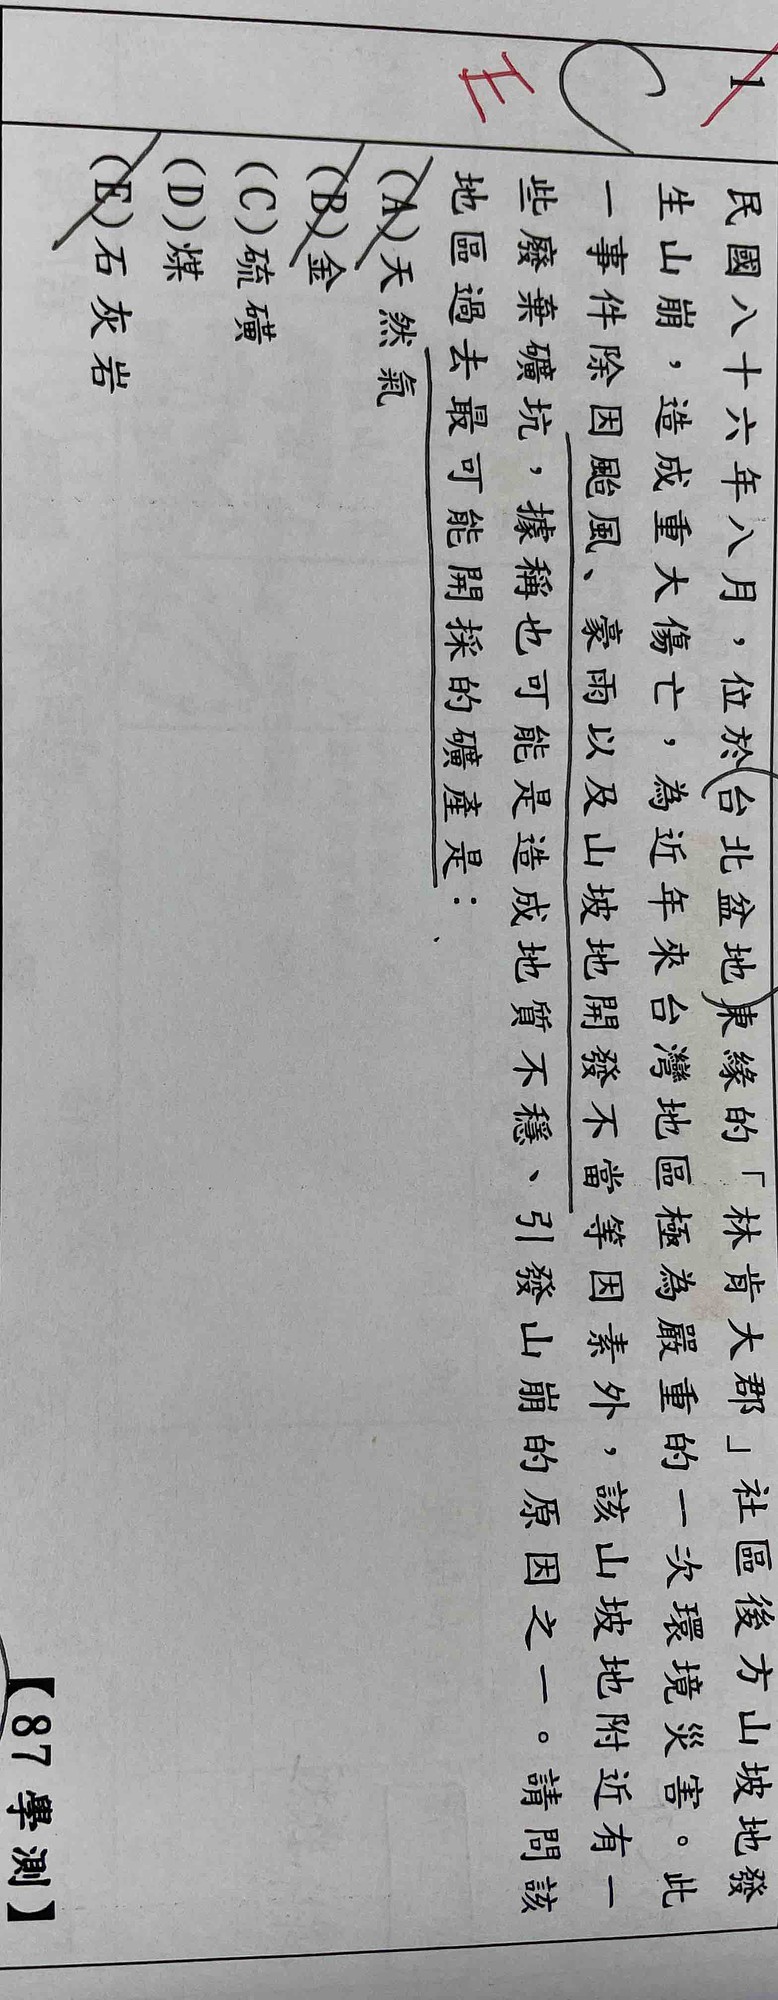 1
民國八十六年八月，位於台北盆地東緣的「林肯大郡」社區後方山坡地發
生山崩，造成重大傷亡，為近年來台灣地區極為嚴重的一次環境災害。此
一事件除因颱風、豪雨以及山坡地開發不當等因素外，該山坡地附近有一
些廢棄礦坑，據稱也可能是造成地質不穩、引發山崩的原因之一。請問該
地區過去最可能開採的礦產是：
C
(A)天然氣
(B)金
(C)硫磺
(D)煤
(E)石灰岩
【87學測】